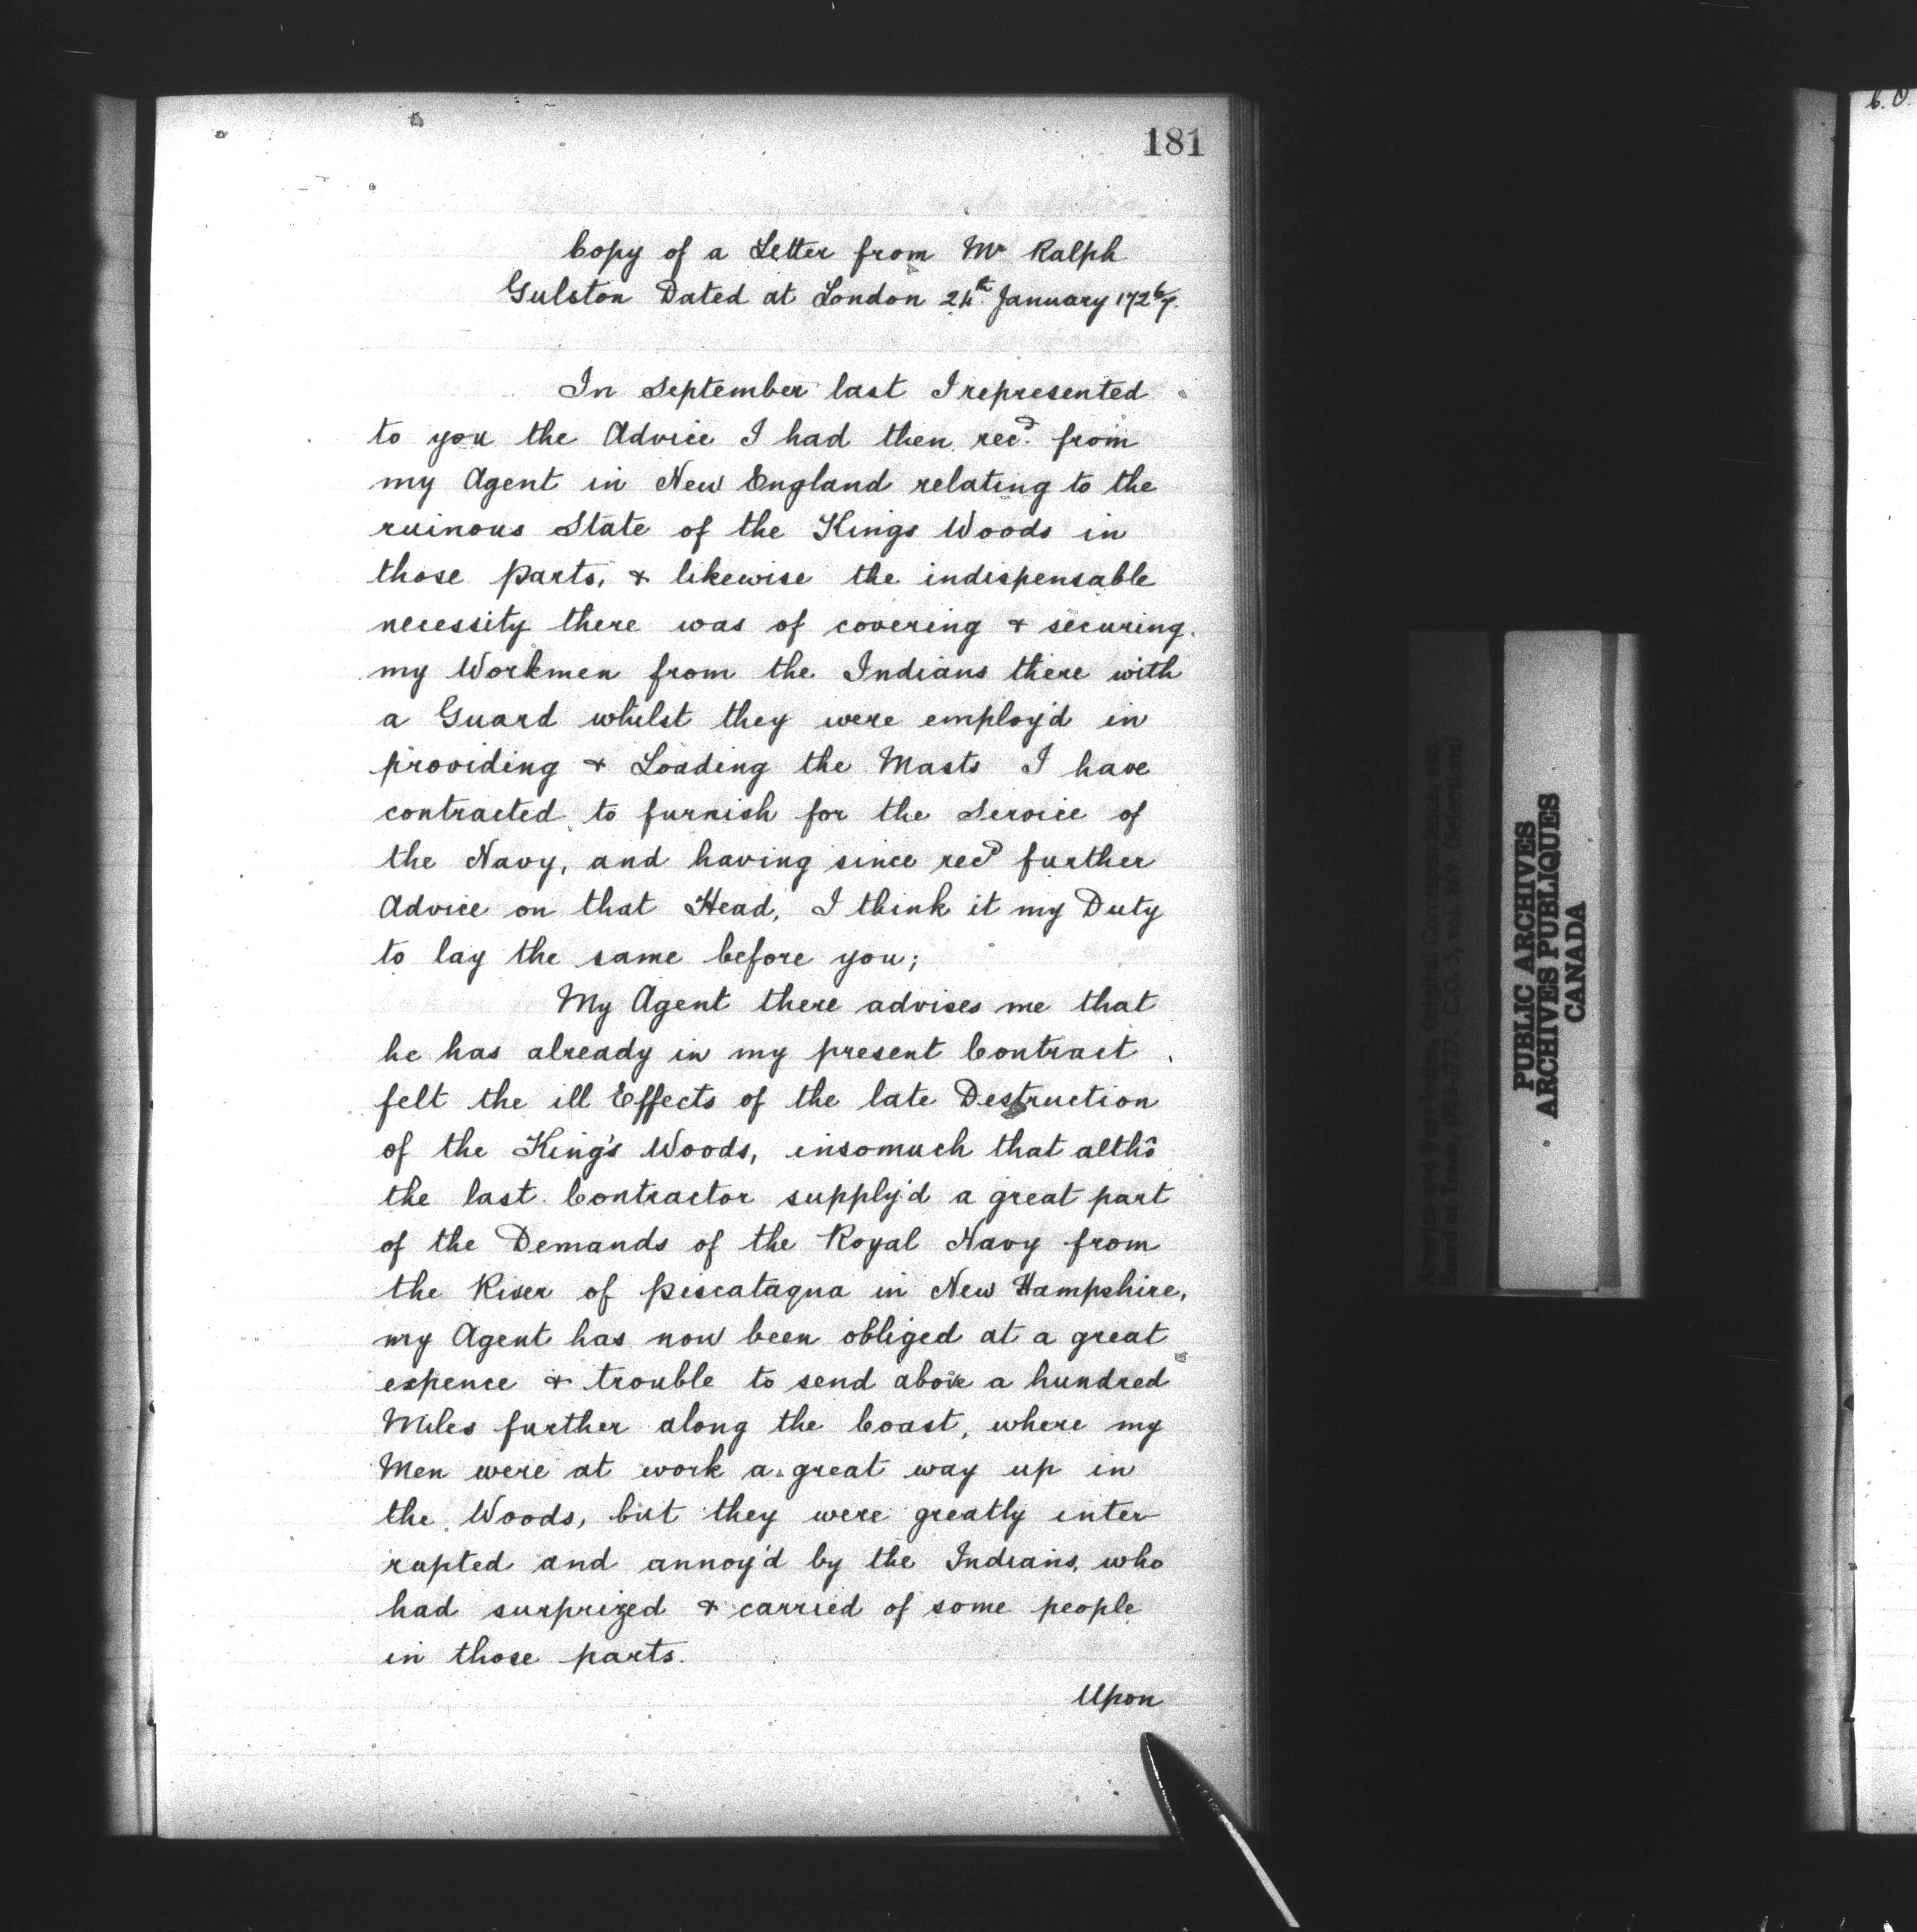 181
Copy of a Letter from Mr Ralph
Gulston Dated at London 24th January 1726/7.
In September last I represented
to you the Advice I had then recd. from
my Agent in New England relating to the
ruinous State of the Kings Woods in
those parts, & likewise the indispensable
necessity there was of covering & securing
my Workmen from the Indians there with
a Guard whilst they were employ'd in
providing & Loading the Masts I have
contracted to furnish for the Service of
the Navy, and having since recd further
Advice on that Head, I think it my Duty
to lay the same before you;
My Agent there advises me that
he has already in my present Contract
felt the ill Effects of the late Destruction
of the King's Woods, insomuch that altho
the last Contractor supply'd a great part
of the Demands of the Royal Navy from
the River of Piscataqua in New Hampshire,
my Agent has now been obliged at a great
expence & trouble to send above a hundred
Miles further along the Coast, where my
Men were at work a great way up in
the Woods, but they were greatly inter-
rupted and annoy'd by the Indians, who
had surprized & carried of some people
in those parts.
Upon
America and West Indies, Original Correspondence, etc.
Board of Trade, 1723-1727. C.O. 5, vol. 869 (Selections)
PUBLIC ARCHIVES
ARCHIVES PUBLIQUES
CANADA
C.O.